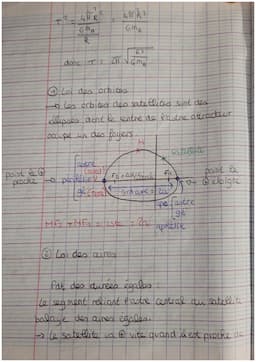 T² = 4π²R² / GmA / R = 4π²R³ / GmA
donc T = 2π √ R³ / GmA
① Loi des orbites
→ les orbites des satellites sont des
ellipses dont le centre de l'astre attracteur
occupe un des foyers
M
satellite
point le ⊕
proche
astre
péri
gé
F1
F2
grand axe = 2a
point le
⊕ éloigné
apo
astre
gé
MF1 + MF2 = cste = 2a
② Loi des aires
Pdt des durées égales :
le segment reliant l'astre central au satellite
balaye des aires égales.
→ le satellite va ⊕ vite quand il est proche de